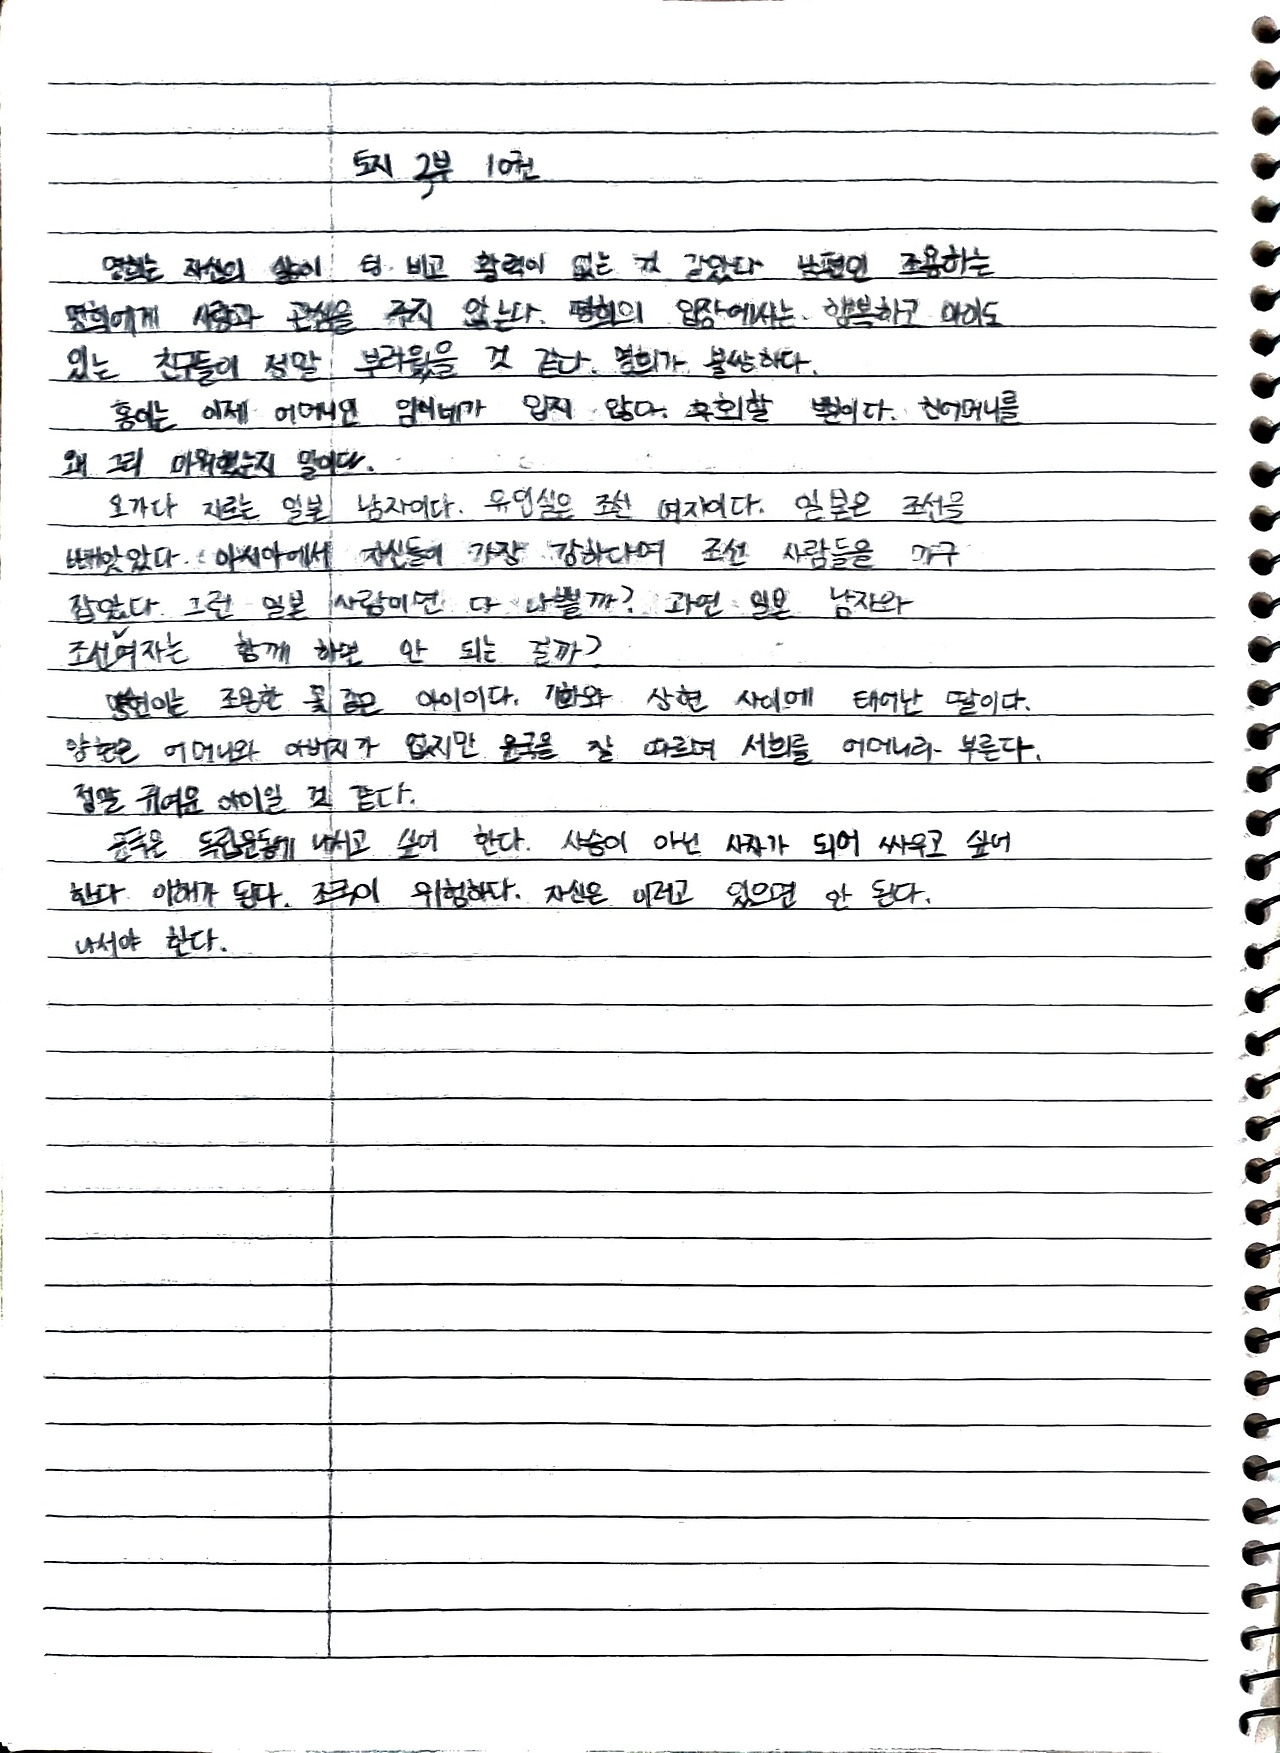 토지 2부 10권
명희는 자신의 삶이 텅 비고 활력이 없는 것 같았다 남편인 조용하는
명희에게 사랑과 관심을 주지 않는다. 명희의 입장에서는 행복하고 아이도
있는 친구들이 정말 부러웠을 것 같다. 명희가 불쌍하다.
홍이는 이제 어머니인 임이네가 밉지 않다. 후회할 뿐이다. 친어머니를
왜 그리 미워했는지 말이다.
오가다 지로는 일본 남자이다. 유인실은 조선 여자이다. 일본은 조선을
빼앗았다. 아시아에서 자신들이 가장 강하다며 조선 사람들을 가구
잡았다. 그런 일본 사람이면 다 나쁠까? 과연 일본 남자와
조선여자는 함께 하면 안 되는 걸까?
조용한 꽃 같은 아이이다. 기화와 상현 사이에 태어난 딸이다.
양현은 어머니와 아버지가 없지만 윤국을 잘 따르며 서희를 어머니라 부른다.
정말 귀여운 아이일 것 같다.
윤국은 독립운동에 나서고 싶어 한다. 사슴이 아닌 사자가 되어 싸우고 싶어
한다. 이해가 된다. 조국이 위험하다. 자신은 이러고 있으면 안 된다.
나서야 한다.